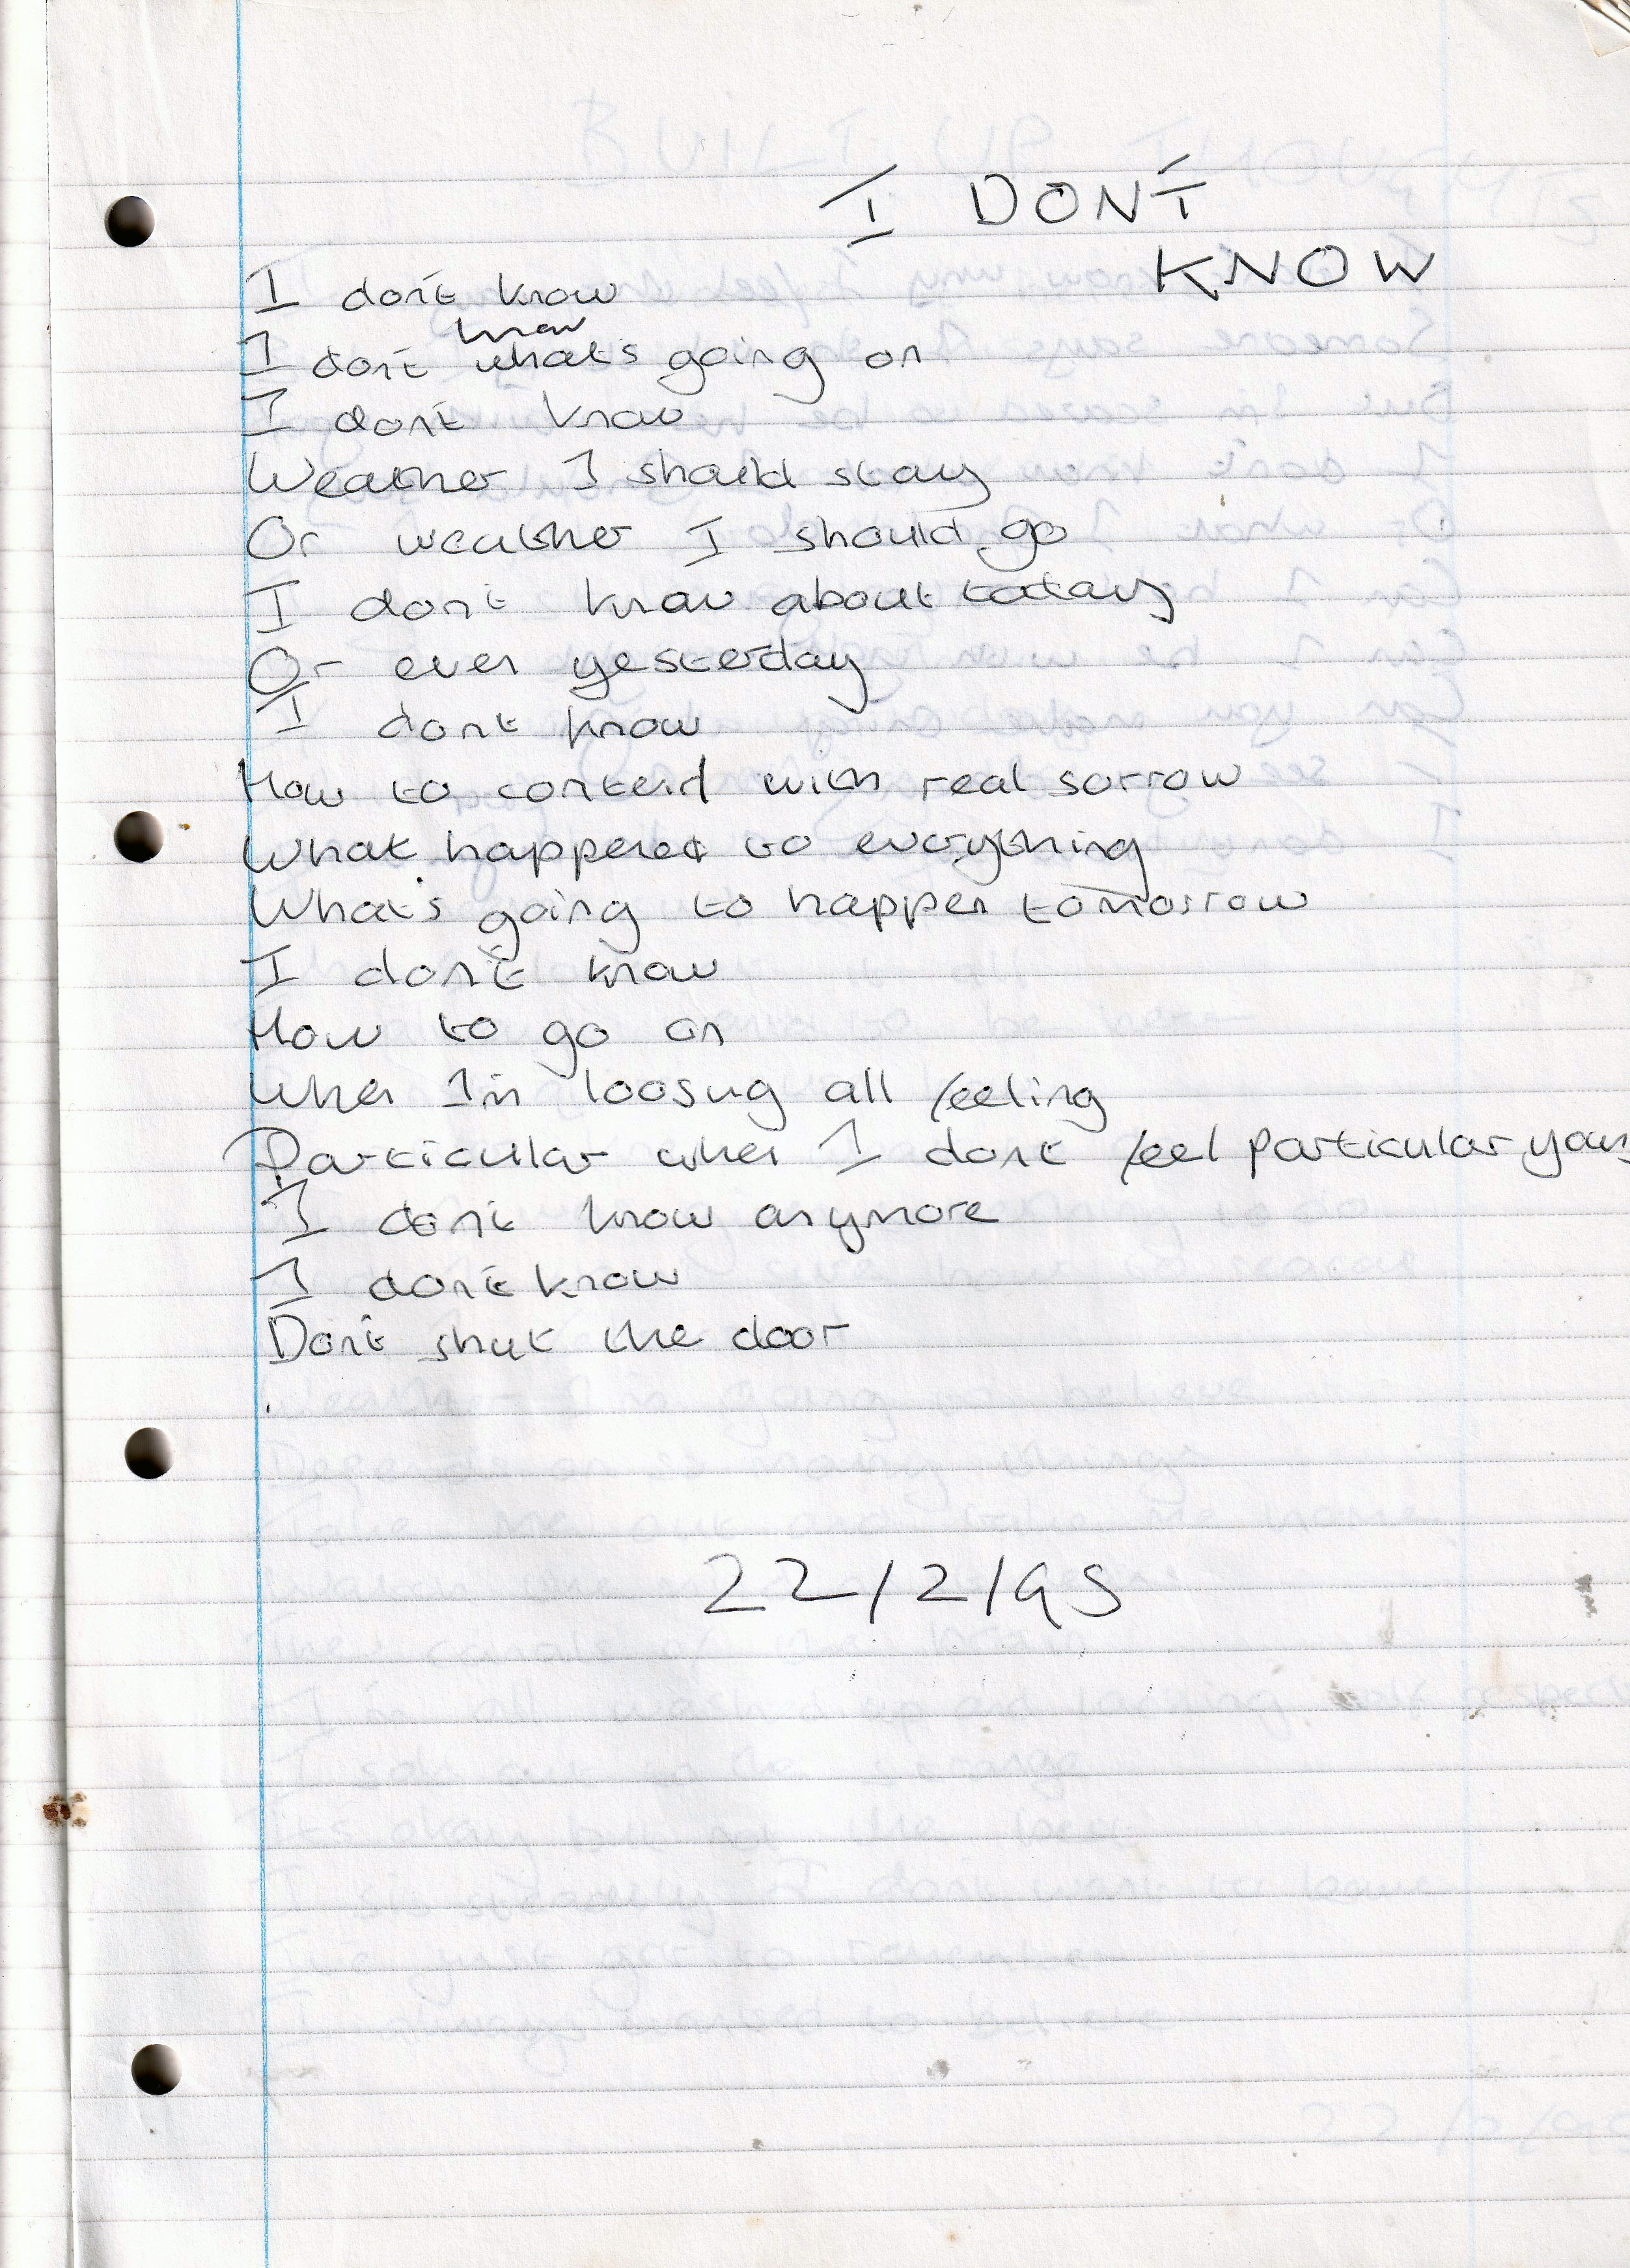 I DON'T
KNOW
I don't know
know
I don't what's going on
I don't know
Weather I should stay
Or weather I should go
I don't know about today
Or even yesterday
I dont know
How to contend with real sorrow
What happened to everything
What's going to happen tomorrow
I don't know
How to go on
When I'm loosing all feeling
Particular when I dont feel particular
I don't know anymore
I don't know
Don't shut the door
22/2/95